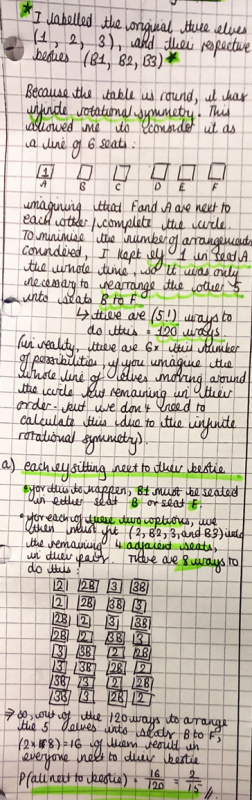 * I labelled the original three elves
(1, 2, 3), and their respective
besties (B1, B2, B3) *
Because the table is round, it has
infinite rotational symmetry. This
allowed me to consider it as
a line of 6 seats:
1
A B C D E F
imagining that F and A are next to
each other / complete the circle.
To minimise the number of arrangements
considered, I kept elf 1 in seat A
the whole time, so it was only
necessary to rearrange the other 5
into seats B to F
↳ there are (5!) ways to
do this = 120 ways
(in reality, there are 6x this number
of possibilities if you imagine the
whole line of elves moving around
the circle but remaining in their
order - but we don't need to
calculate this due to the infinite
rotational symmetry).
a) each elf sitting next to their bestie
• for this to happen, B1 must be seated
in either seat B or seat F.
• for each of these two options, we
then must fit (2, B2, 3, and B3) into
the remaining 4 adjacent seats,
in their pairs. There are 8 ways to
do this:
2 2B 3 3B
2 2B 3B 3
2B 2 3 3B
2B 2 3B 3
3 3B 2 2B
3 3B 2B 2
3B 3 2 2B
3B 3 2B 2
→ so, out of the 120 ways to arrange
the 5 elves into seats B to F,
(2 x 8) = 16 of them result in
everyone next to their bestie
P(all next to bestie) = 16/120 = 2/15 //